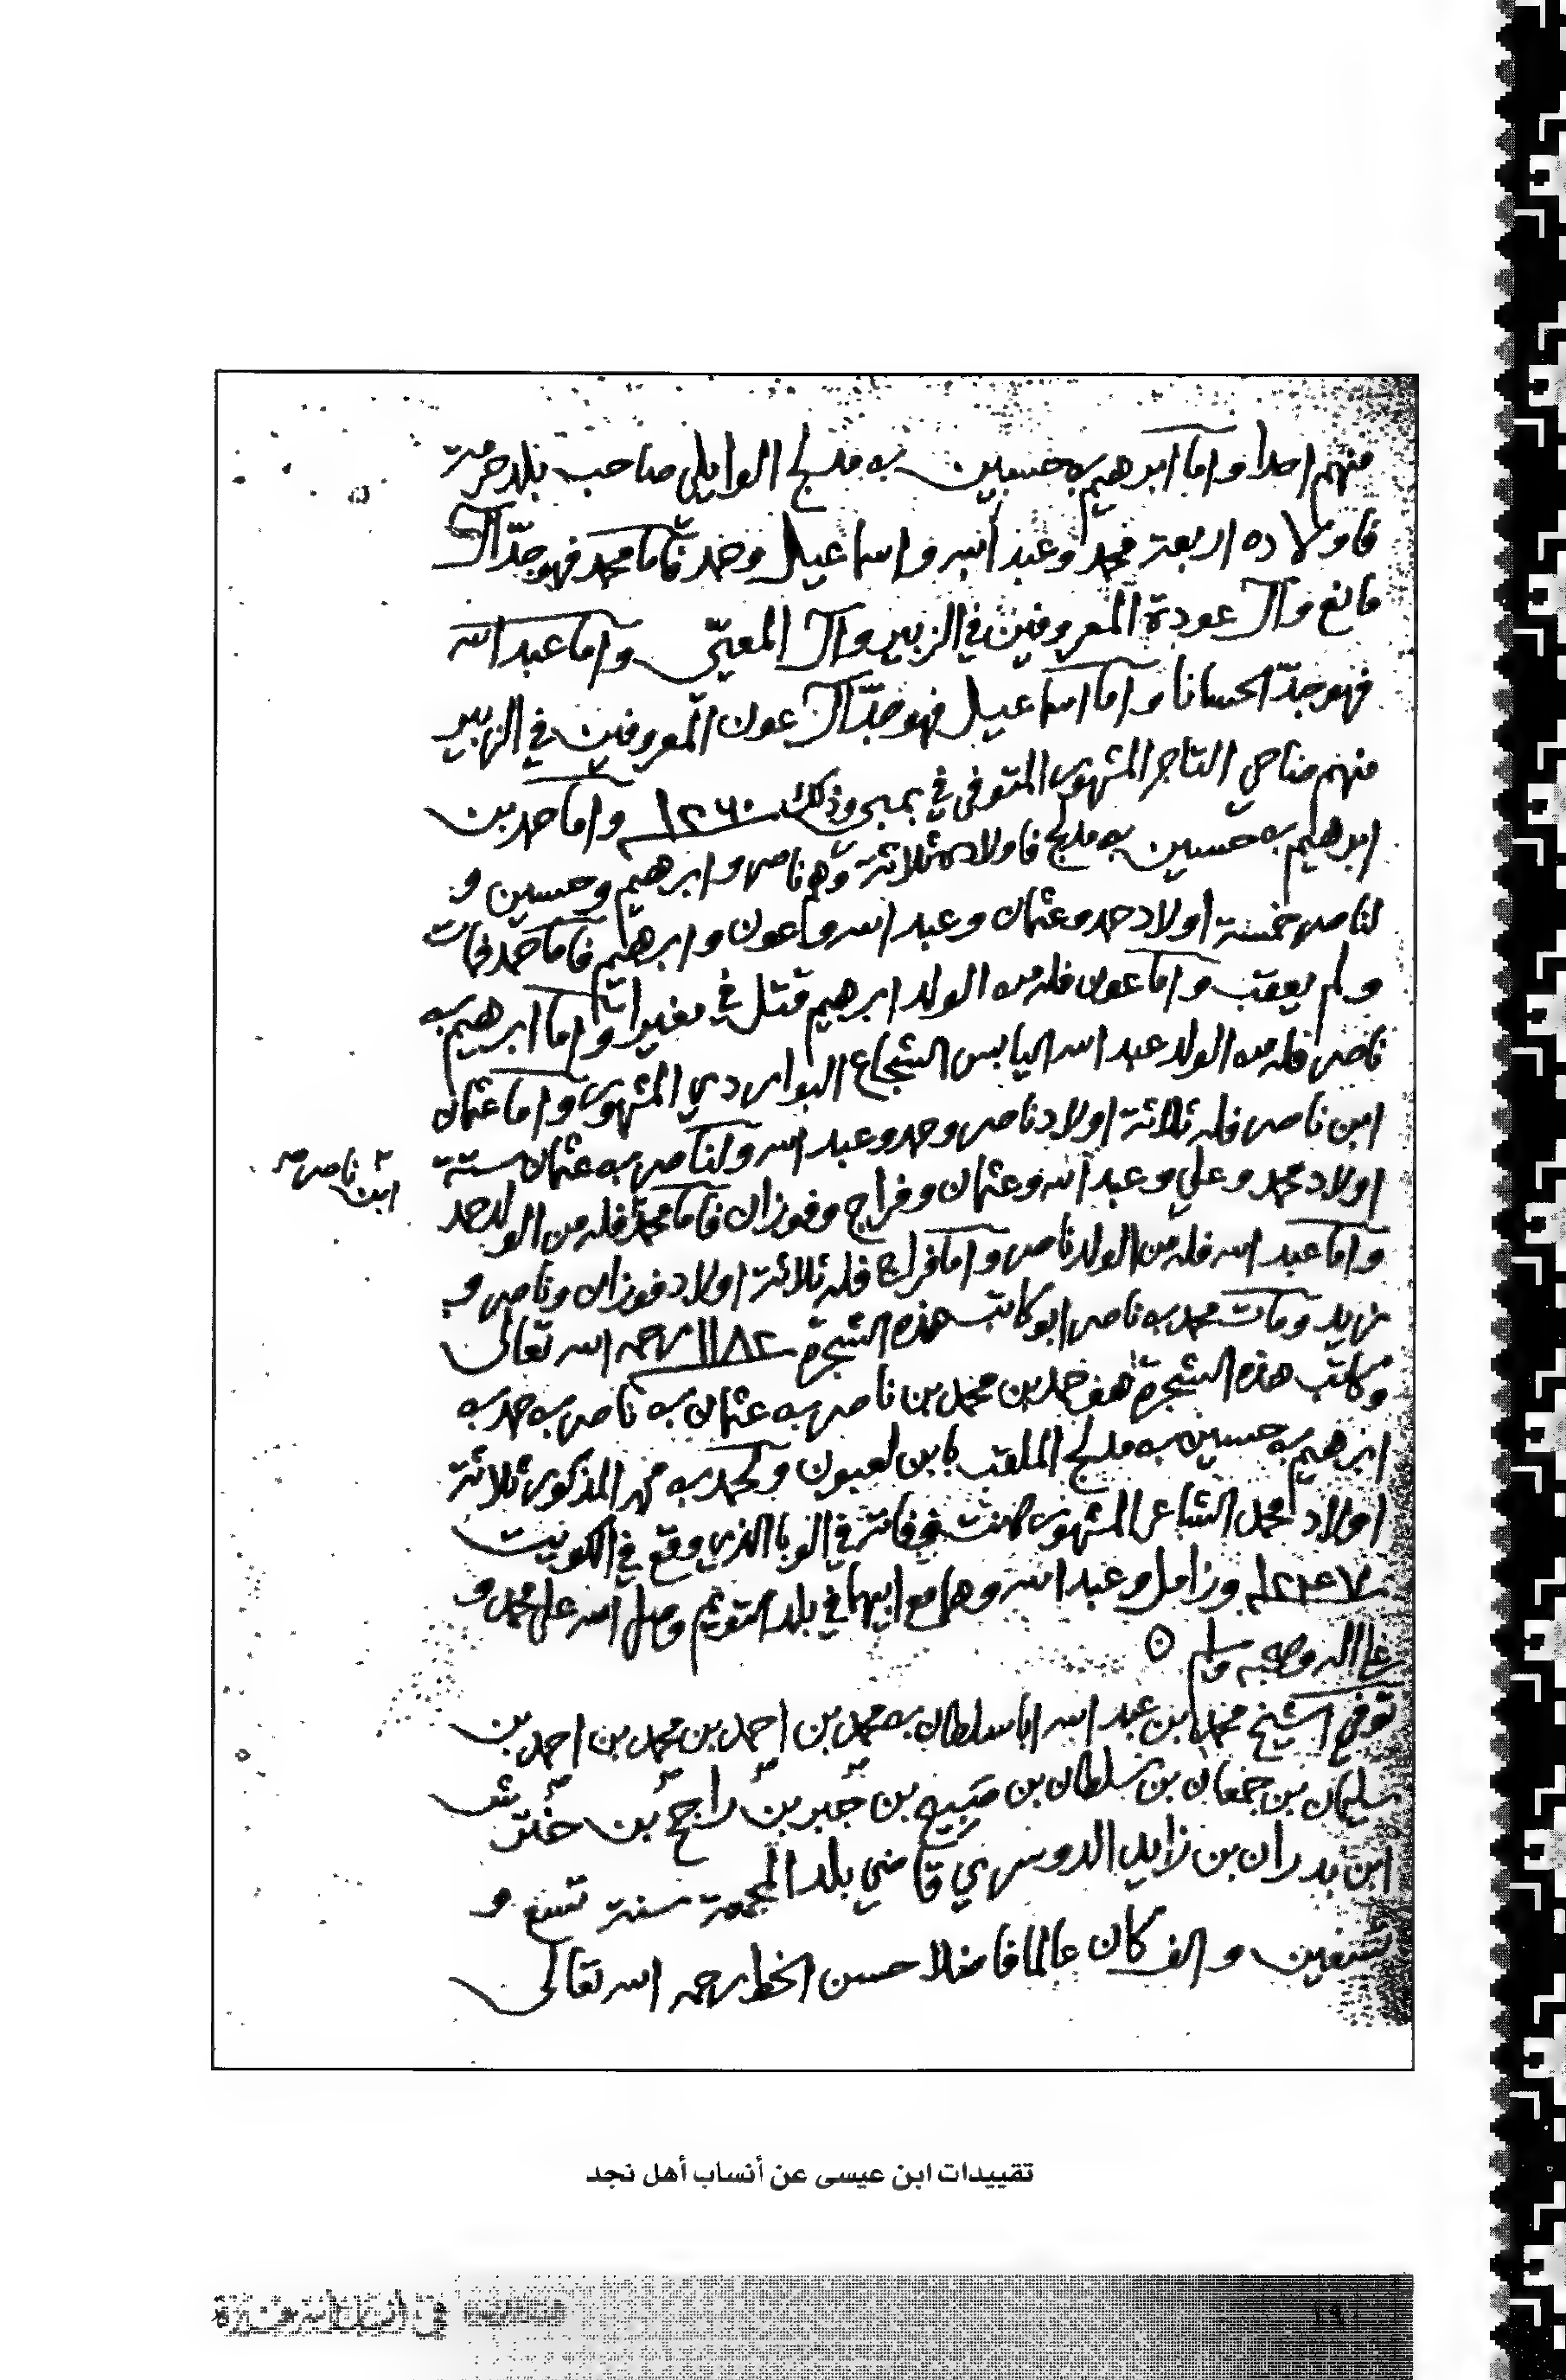 منهم احدا واما ابرهيم بن حسين بن مدلج الوايلي صاحب بلد حرمة
فاولاده اربعة محمد وعبد الله واسماعيل وحمد فاما محمد فهو جدّ ال
مانع وال عودة المعروفين في الزبير وال المعيّي واما عبد الله
فهو جدّ الحسانا واما اسماعيل فهو جدّ ال عون المعروفين في الزبير
منهم ضاحي التاجر المشهور المتوفي في بمبي وذلك ١٢٦٠ واما حمد بن
ابرهيم بن حسين بن مدلج فاولاده ثلاثة وهم ناصر وابرهيم وحسين و
لناصر خمسة اولاد حمد وعثمان وعبد الله وعون وابرهيم فاما حمد فمات
ولم يعقب واما عون فله من الولد ابرهيم قتل في مغيرا واما ابرهيم بن
ناصر فله من الولد عبد الله اليابس الشجاع البواردي المشهور واما عثمان
ابن ناصر فله ثلاثة اولاد ناصر وحمد وعبد الله ولناصر بن عثمان ستة
ابن ناصر
اولاد محمد وعلي وعبد الله وعثمان وفراج وفوزان فاما محمد فله من الولد حمد
واما عبد الله فله من الولد ناصر واما فراج فله ثلاثة اولاد فوزان وناصر و
زيد ومات محمد بن ناصر ابو كاتب هذه الشجرة ١١٨٢ رحمه الله تعالى
وكاتب هذه الشجرة هو حمد بن محمد بن ناصر بن عثمان بن ناصر بن حمد بن
ابرهيم بن حسين بن مدلج الملقب بابن لعبون ولحمد بن محمد المذكور ثلاثة
اولاد محمد الشاعر المشهور كانت وفاته في الوبا الذي وقع في الكويت
١٢٤٧ وزامل وعبد الله وهما مع ابيهما في بلد التويم وصلى الله على محمد و
على اله وصحبه وسلم
توفي الشيخ محمد بن عبد الله ابا سلطان بن محمد بن احمد بن محمد بن احمد بن
سليمان بن جمعان بن سلطان بن صبيح بن جبر بن راجح بن خترش
ابن بدران بن زايد الدوسري قاضي بلد المجمعة سنة تسع و
تسعين والف كان عالما فاضلا حسن الخط رحمه الله تعالى
تقييدات ابن عيسى عن أنساب أهل نجد